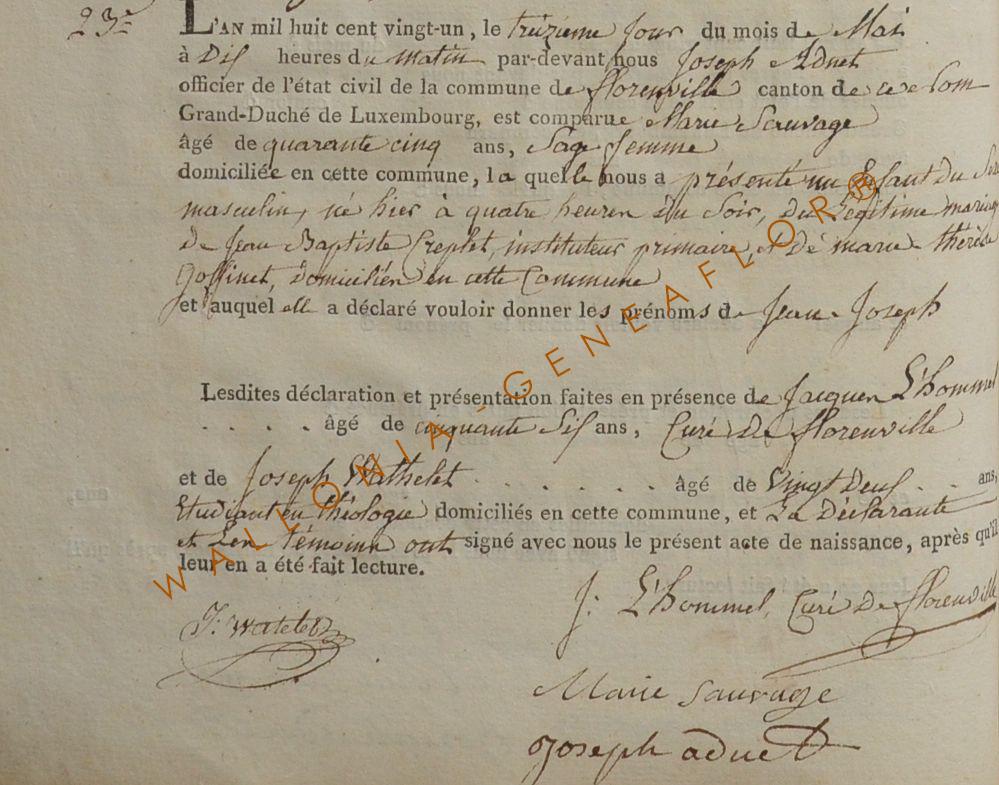 23e
L'AN mil huit cent vingt-un, le treizieme jour du mois de Mai
à Dis heures du matin par-devant nous Joseph Adnet
officier de l'état civil de la commune de florenville canton de ce Com
Grand-Duché de Luxembourg, est comparue Marie Sauvage
âgé de quarante cinq ans, Sage femme
domiciliée en cette commune, la quelle nous a présenté un Enfant du Sexe
masculin, né hier à quatre heures du Soir, du Légitime mariage
de Jean Baptiste Creplet, instituteur primaire, et de marie thérèse
Goffinet, domiciliés en cette Commune
et auquel elle a déclaré vouloir donner les prénoms de Jean Joseph
Lesdites déclaration et présentation faites en présence de Jacques L'hommel
. . . . âgé de cinquante Six ans, Curé de florenville
et de Joseph Wathelet . . . . . . . âgé de Vingt Deux . . ans,
Etudiant en théologie domiciliés en cette commune, et La Déclarante
et Les témoins ont signé avec nous le présent acte de naissance, après qu'il
leur en a été fait lecture.
J: L'hommel, Curé De florenville
J: Watelet
Marie Sauvage
Joseph adnet
WALLONIA-GENEAFLOR®